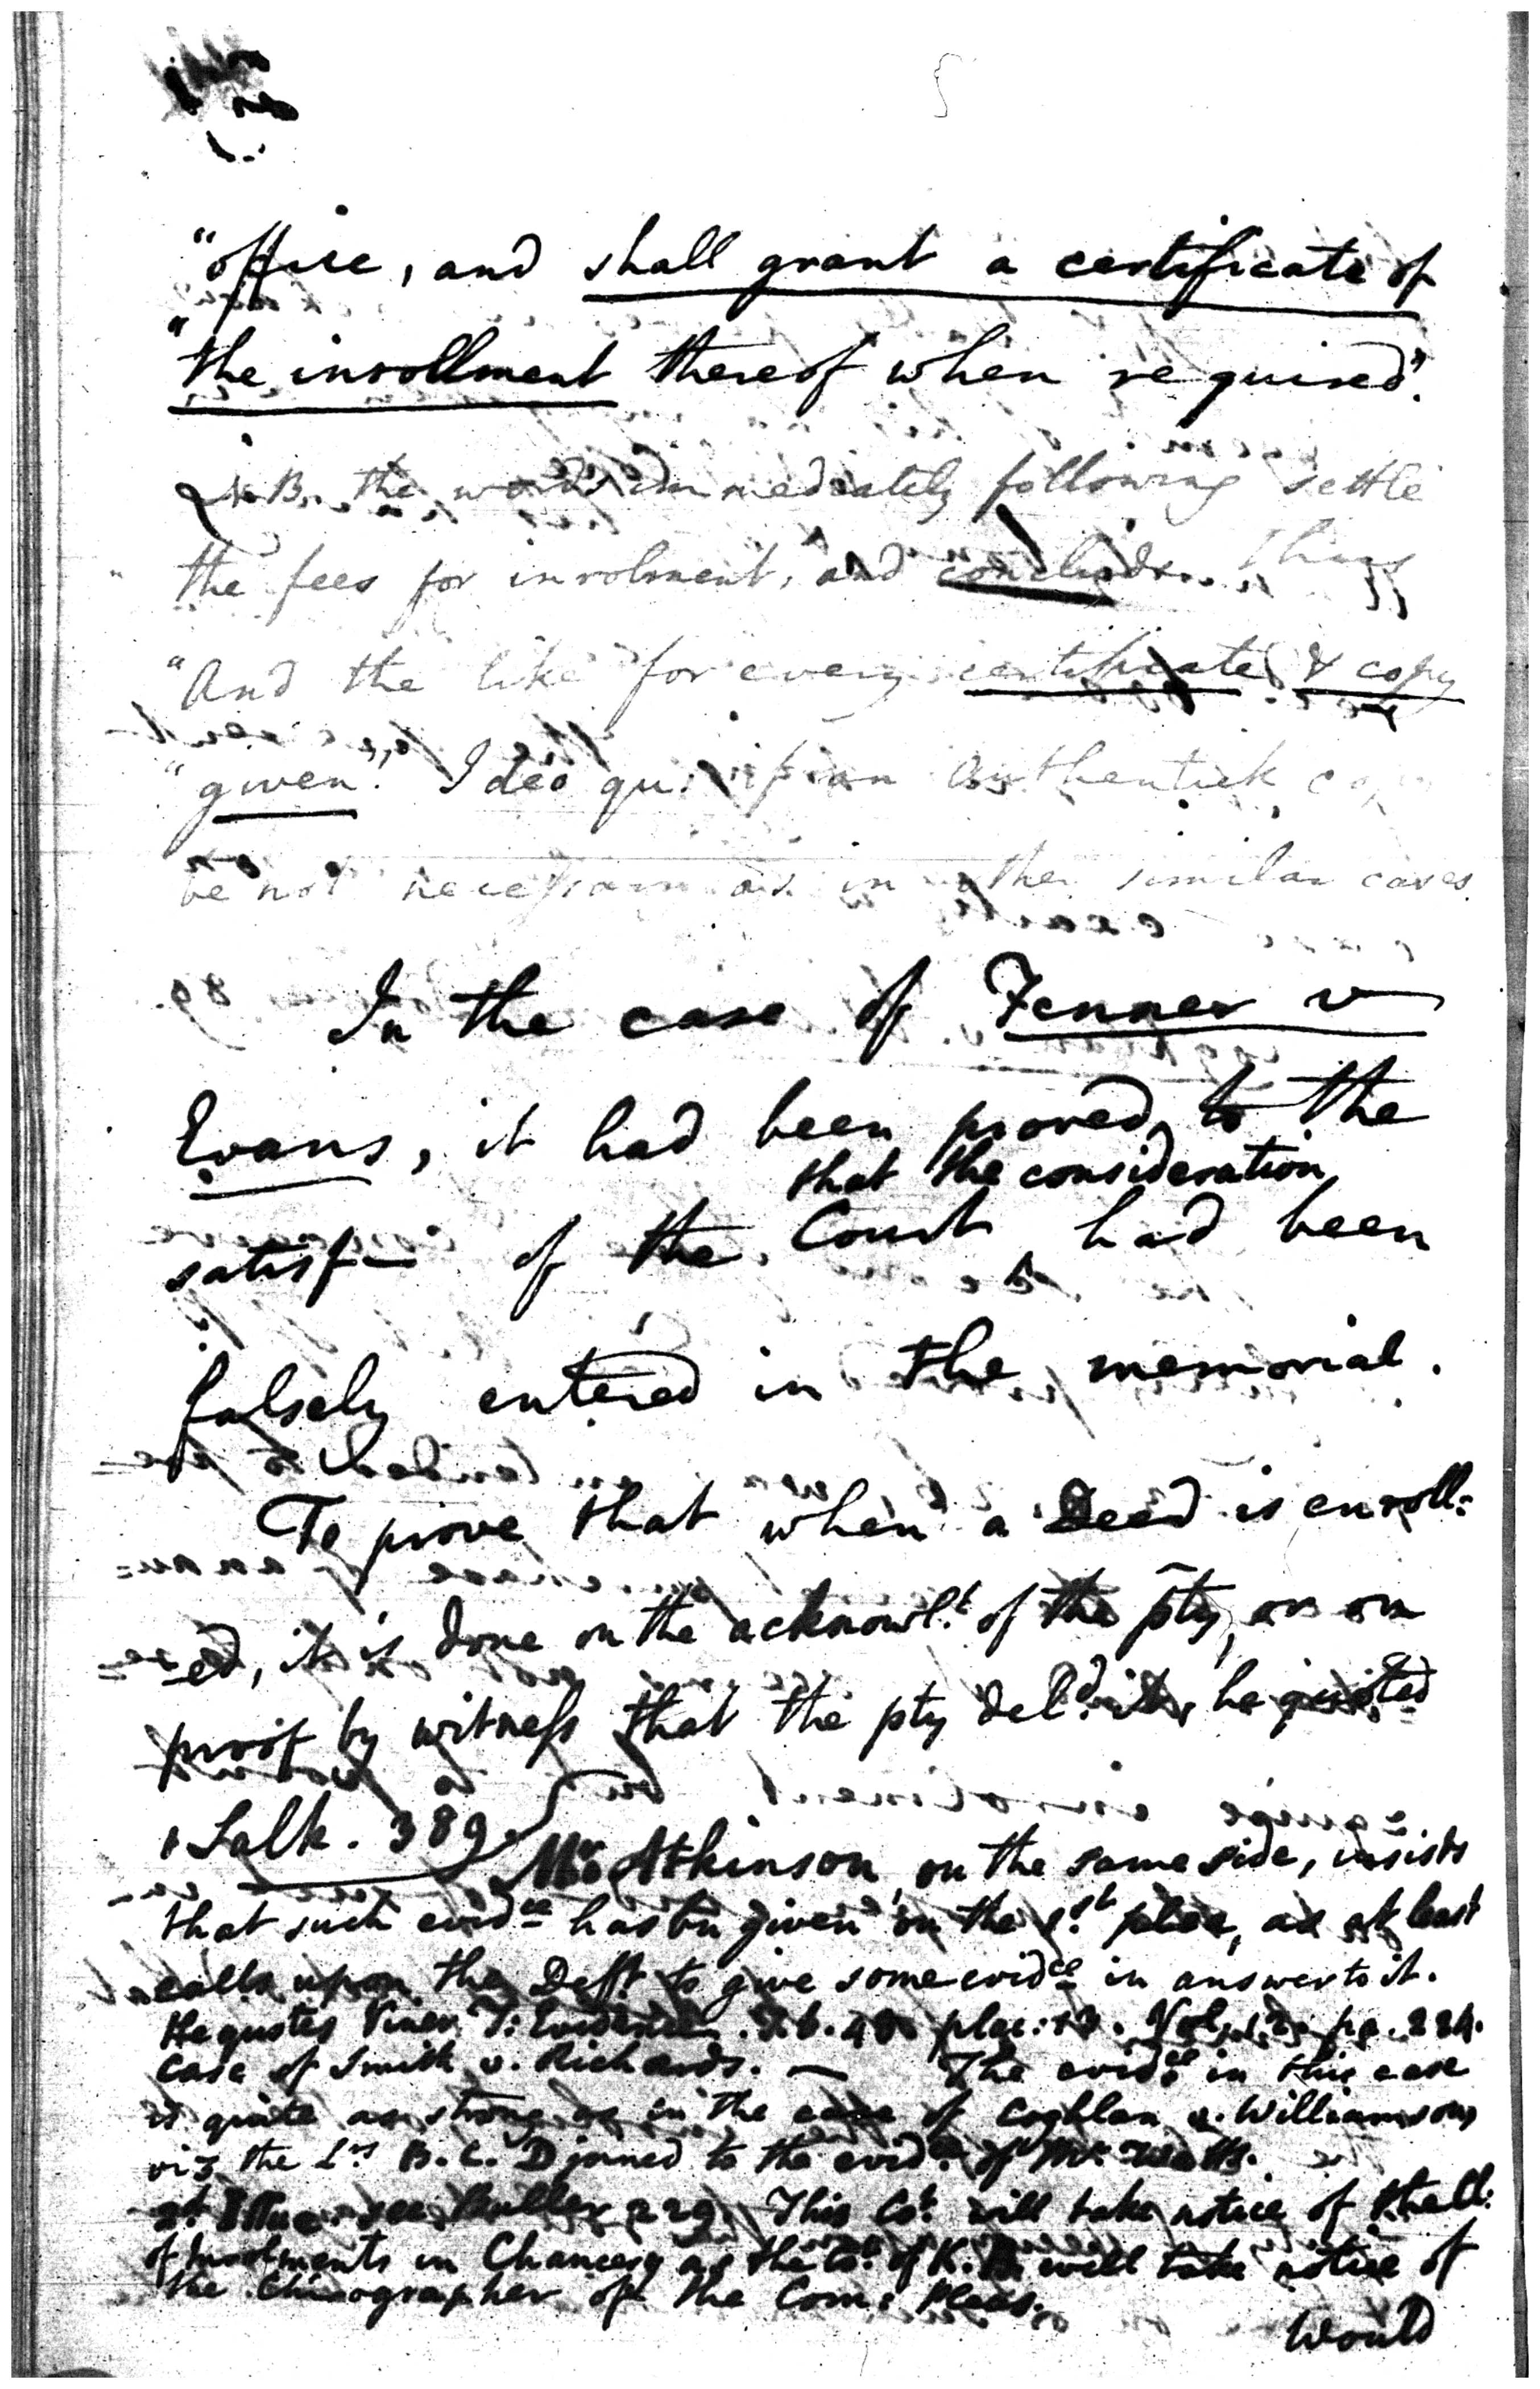 "office, and shall grant a certificate of
"the inrollment thereof when required".
N.B. the words immediately following settle
the fees for inrolment, and conclude thus
"And the like for every certificate & copy
"given". Ideo qu: if an authentick copy
be not necessary as in other similar cases
In the case of Fenner v
Evans, it had been proved, to the
that the consideration
satisf— of the Court had been
falsely entered in the memorial.
To prove that when a Deed is enroll:
ed, it is done on the acknowl.t of the pty, or on
proof by witness that the pty del.d it, he quoted
1 Salk. 389.
Mr. Atkinson on the same side, insists
that such evid.ce has bn given in the 1.st place, as at least
calls upon the Deft. to give some evid.ce in answer to it.
He quotes Viner T: Evidence. T. b. 48. plac: 12. Vol. 12. pa. 224.
case of Smith v. Richards. — The evid.ce in this case
is quite as strong as in the case of Coghlan v. Williamson,
viz the L.rs B. C. D joined to the evid.ce of Mr. Watts.
see Buller 229. This C.t will take notice of the
of Inrolments in Chancery as the C.t of K. B. will take notice of
the Chirographer of the Com: Pleas.
Would